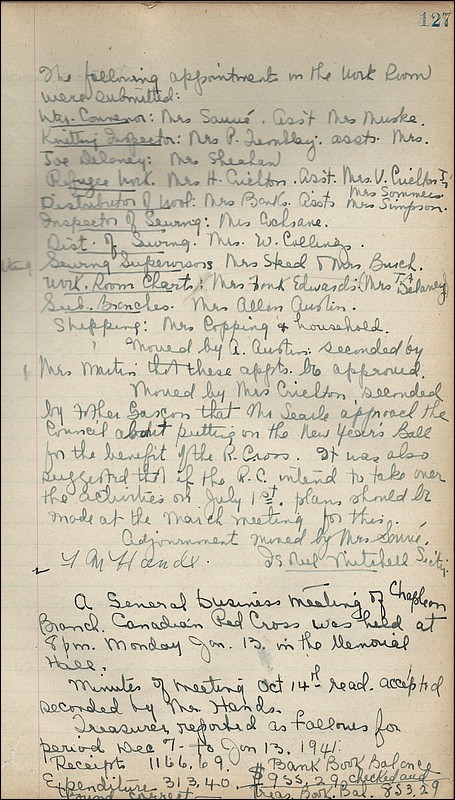 127
The following appointments in the Work Room
were submitted:
Way. Convenor: Mrs Sauvé. Ass't Mrs Muske.
Knitting Inspector: Mrs P. Tremblay. assts. Mrs.
Joe Delaney: Mrs Sheehan
Refugee Work. Mrs H. Crichton. Asst. Mrs. V. Crichton
Mrs Somners
Distributor of Wool: Mrs Banks. Assts Mrs Simpson.
Inspector of Sewing: Mrs Cochrane.
Dist. of Sewing: Mrs. W. Collings.
Sewing Supervisors Mrs Steed & Mrs. Busch.
Work. Room Charts: Mrs Fonk Edwards: (Mrs T.A. Delaney)
Sub. Branches. Mrs Allan Austin.
Shipping: Mrs Copping & household.
Moved by A. Austin seconded by
Mrs Martin that these appts. be approved.
Moved by Mrs Crichton seconded
by Father Gascon that Mr Searle approach the
Council about putting on the New Year's Ball
for the benefit of the R. Cross. It was also
suggested that if the R.C. intend to take over
the activities on July 1st. plans should be
made at the March meeting for this.
Adjournment moved by Mrs Sauvé.
Y M Hands. Mitchell Sect'y.
A General business meeting of Chapleau
Branch. Canadian Red Cross was held at
8 pm. Monday Jan. 13. in the Memorial
Hall.
Minutes of meeting Oct 14th read. accepted
seconded by Mr Hands.
Treasurer reported as follows for
period Dec 7- to Jan 13. 1941.
Receipts 1166.69. Bank Book Balance
Expenditure 313.40. $955.29 checked and
found correct Treas. Book. Bal. 853.29